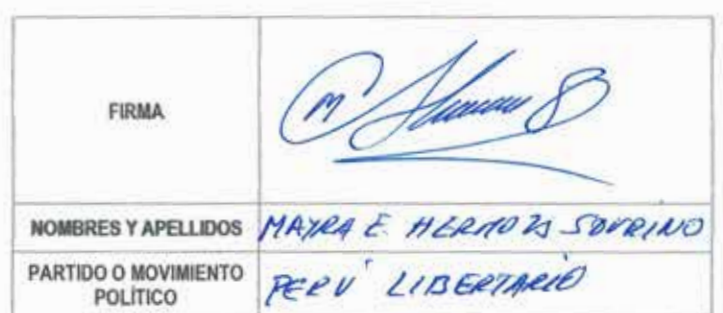 FIRMA
NOMBRES Y APELLIDOS MAYRA E. HERMOZA SOVRINO
PARTIDO O MOVIMIENTO
POLÍTICO
PERÚ LIBERTARIO